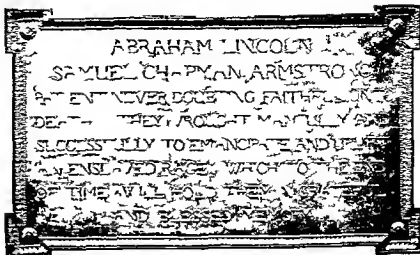 ABRAHAM LINCOLN
SAMUEL CHAPMAN ARMSTRONG
PATIENT NEVER DOUBTING FAITHFUL IN
DEATH THEY WROUGHT MANFULLY AND
SUCCESSFULLY TO EMANCIPATE AND
ENSLAVED RACE WHICH TO THE END
OF TIME WILL HOLD THEM
AND BLESSED